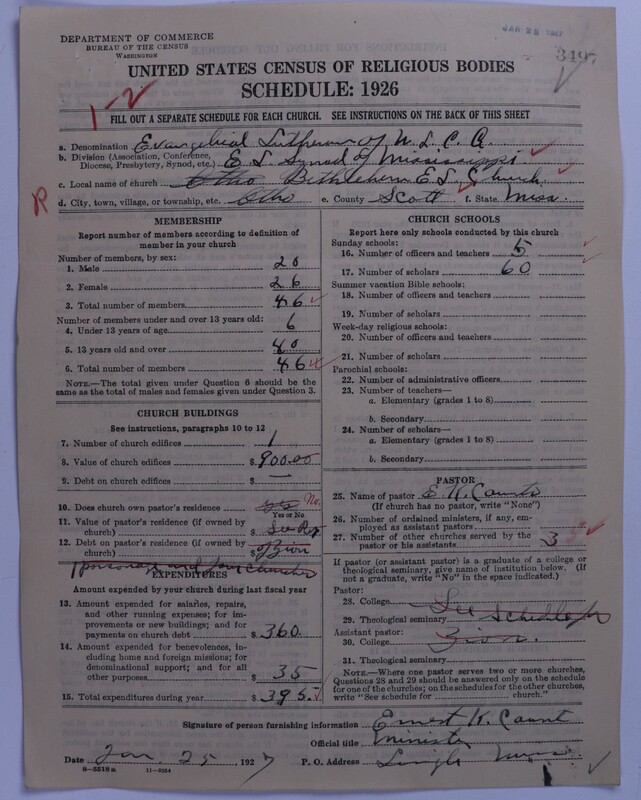 DEPARTMENT OF COMMERCE
BUREAU OF THE CENSUS
WASHINGTON
349
UNITED STATES CENSUS OF RELIGIOUS BODIES
SCHEDULE: 1926
1-2
FILL OUT A SEPARATE SCHEDULE FOR EACH CHURCH. SEE INSTRUCTIONS ON THE BACK OF THIS SHEET
a. Denomination Evangelical Lutheran of U. L. C. A.
b. Division (Association, Conference, Diocese, Presbytery, Synod, etc.) E L Synod of Mississippi
c. Local name of church Otho Bethlehem E L Church
R
d. City, town, village, or township, etc. Otho e. County Scott f. State Miss.
MEMBERSHIP
Report number of members according to definition of
member in your church
Number of members, by sex:
1. Male 20
2. Female 26
3. Total number of members 46
Number of members under and over 13 years old:
4. Under 13 years of age 6
5. 13 years old and over 40
6. Total number of members 46
NOTE.—The total given under Question 6 should be
same as the total of males and females given under Question 3.
CHURCH BUILDINGS
See instructions, paragraphs 10 to 12
7. Number of church edifices 1
8. Value of church edifices $ 900.00
9. Debt on church edifices $ —
10. Does church own pastor's residence yes No.
Yes or No
11. Value of pastor's residence (if owned by
church) $ See Rep
12. Debt on pastor's residence (if owned by
church) $ of Zion
1 parsonage and four churches
EXPENDITURES
Amount expended by your church during last fiscal year
13. Amount expended for salaries, repairs,
and other running expenses; for im-
provements or new buildings; and for
payments on church debt $ 360.
14. Amount expended for benevolences, in-
cluding home and foreign missions; for
denominational support; and for all
other purposes $ 35
15. Total expenditures during year $ 395.
CHURCH SCHOOLS
Report here only schools conducted by this church
Sunday schools:
16. Number of officers and teachers 5
17. Number of scholars 60
Summer vacation Bible schools:
18. Number of officers and teachers
19. Number of scholars
Week-day religious schools:
20. Number of officers and teachers
21. Number of scholars
Parochial schools:
22. Number of administrative officers
23. Number of teachers—
a. Elementary (grades 1 to 8)
b. Secondary
24. Number of scholars—
a. Elementary (grades 1 to 8)
b. Secondary
PASTOR
25. Name of pastor E. K. Counts
(If church has no pastor, write "None")
26. Number of ordained ministers, if any, em-
ployed as assistant pastors
27. Number of other churches served by the
pastor or his assistants 3
If pastor (or assistant pastor) is a graduate of a college or
theological seminary, give name of institution below. (If
not a graduate, write "No" in the space indicated.)
Pastor:
28. College See
29. Theological seminary Schedule for
Assistant pastor:
30. College Zion.
31. Theological seminary
NOTE.—Where one pastor serves two or more churches,
Questions 28 and 29 should be answered only on the schedule
for one of the churches; on the schedules for the other churches,
write "See schedule for church."
Signature of person furnishing information Ernest K. Count
Official title Minister
Date Jan. 25, 1927 P. O. Address Miss.
8—5518a 11—9254